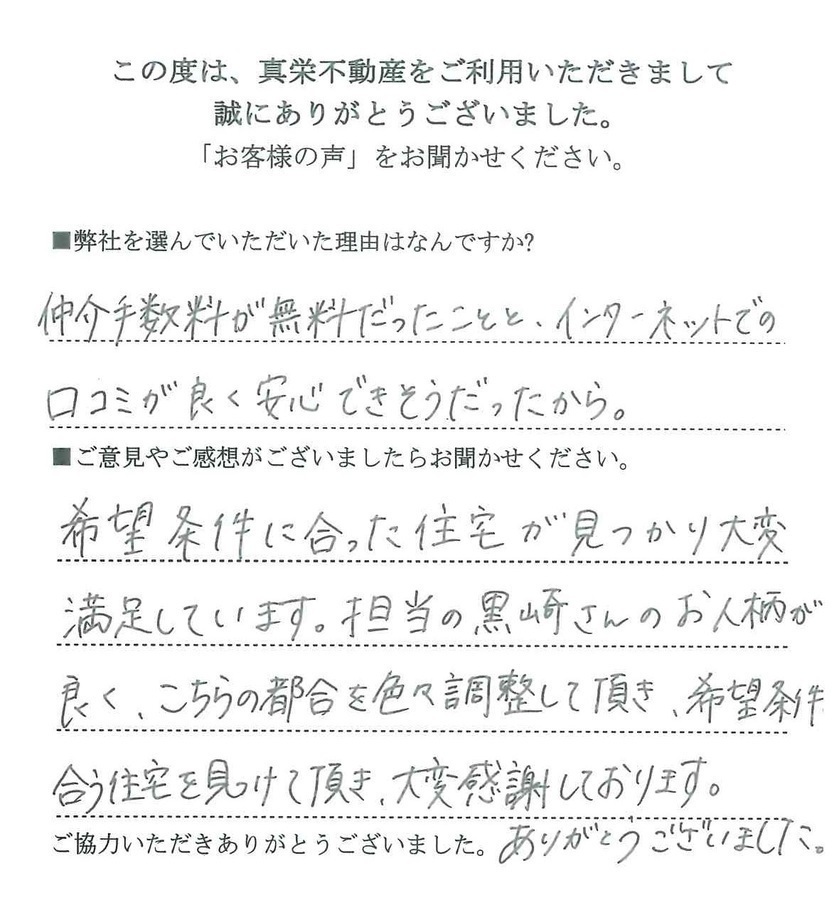 この度は、真栄不動産をご利用いただきまして
誠にありがとうございました。
「お客様の声」をお聞かせください。
■弊社を選んでいただいた理由はなんですか?
仲介手数料が無料だったことと、インターネットでの
口コミが良く安心できそうだったから。
■ご意見やご感想がございましたらお聞かせください。
希望条件に合った住宅が見つかり大変
満足しています。担当の黒崎さんのお人柄が
良く、こちらの都合を色々調整して頂き、希望条件
合う住宅を見つけて頂き、大変感謝しております。
ご協力いただきありがとうございました。ありがとうございました。